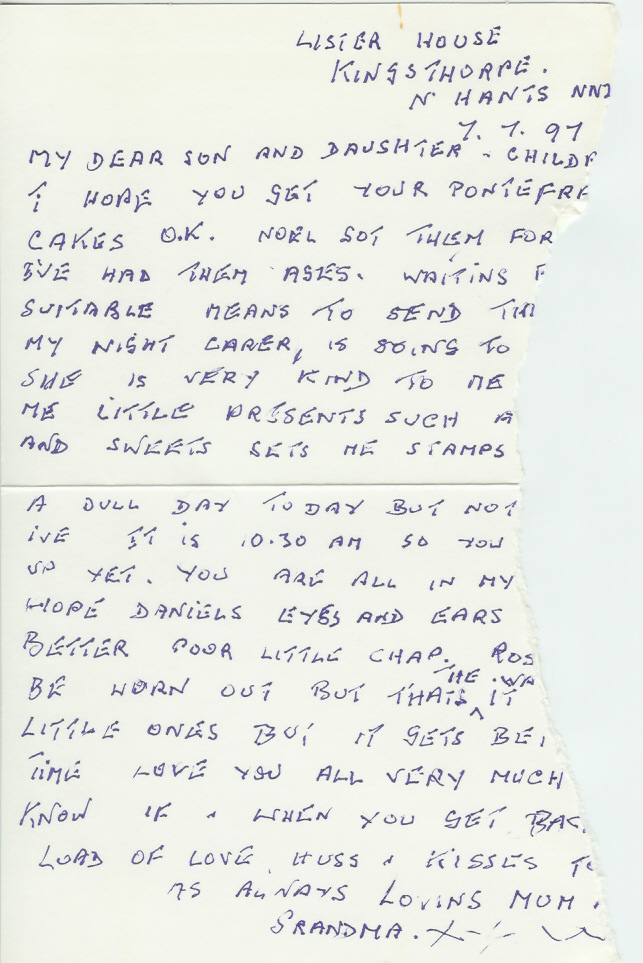 LISTER HOUSE
KINGSTHORPE.
N' HANTS NN2
7. 7. 97
MY DEAR SON AND DAUGHTER & CHILD
I HOPE YOU GET YOUR PONTEFRA
CAKES O.K. NOEL GOT THEM FOR
I'VE HAD THEM AGES. WAITING F
SUITABLE MEANS TO SEND TH
MY NIGHT CARER, IS GOING TO
SHE IS VERY KIND TO ME
ME LITTLE PRESENTS SUCH A
AND SWEETS GETS ME STAMPS
A DULL DAY TODAY BUT NOT
IVE IT IS 10.30 AM SO YOU
UP YET. YOU ARE ALL IN MY
HOPE DANIELS EYES AND EARS
BETTER POOR LITTLE CHAP. ROS
BE WORN OUT BUT THATS THE WA IT
LITTLE ONES BUT IT GETS BE
TIME LOVE YOU ALL VERY MUCH
KNOW IF & WHEN YOU GET BAC
LOAD OF LOVE HUGS & KISSES TO
AS ALWAYS LOVING MUM &
GRANDMA. X X